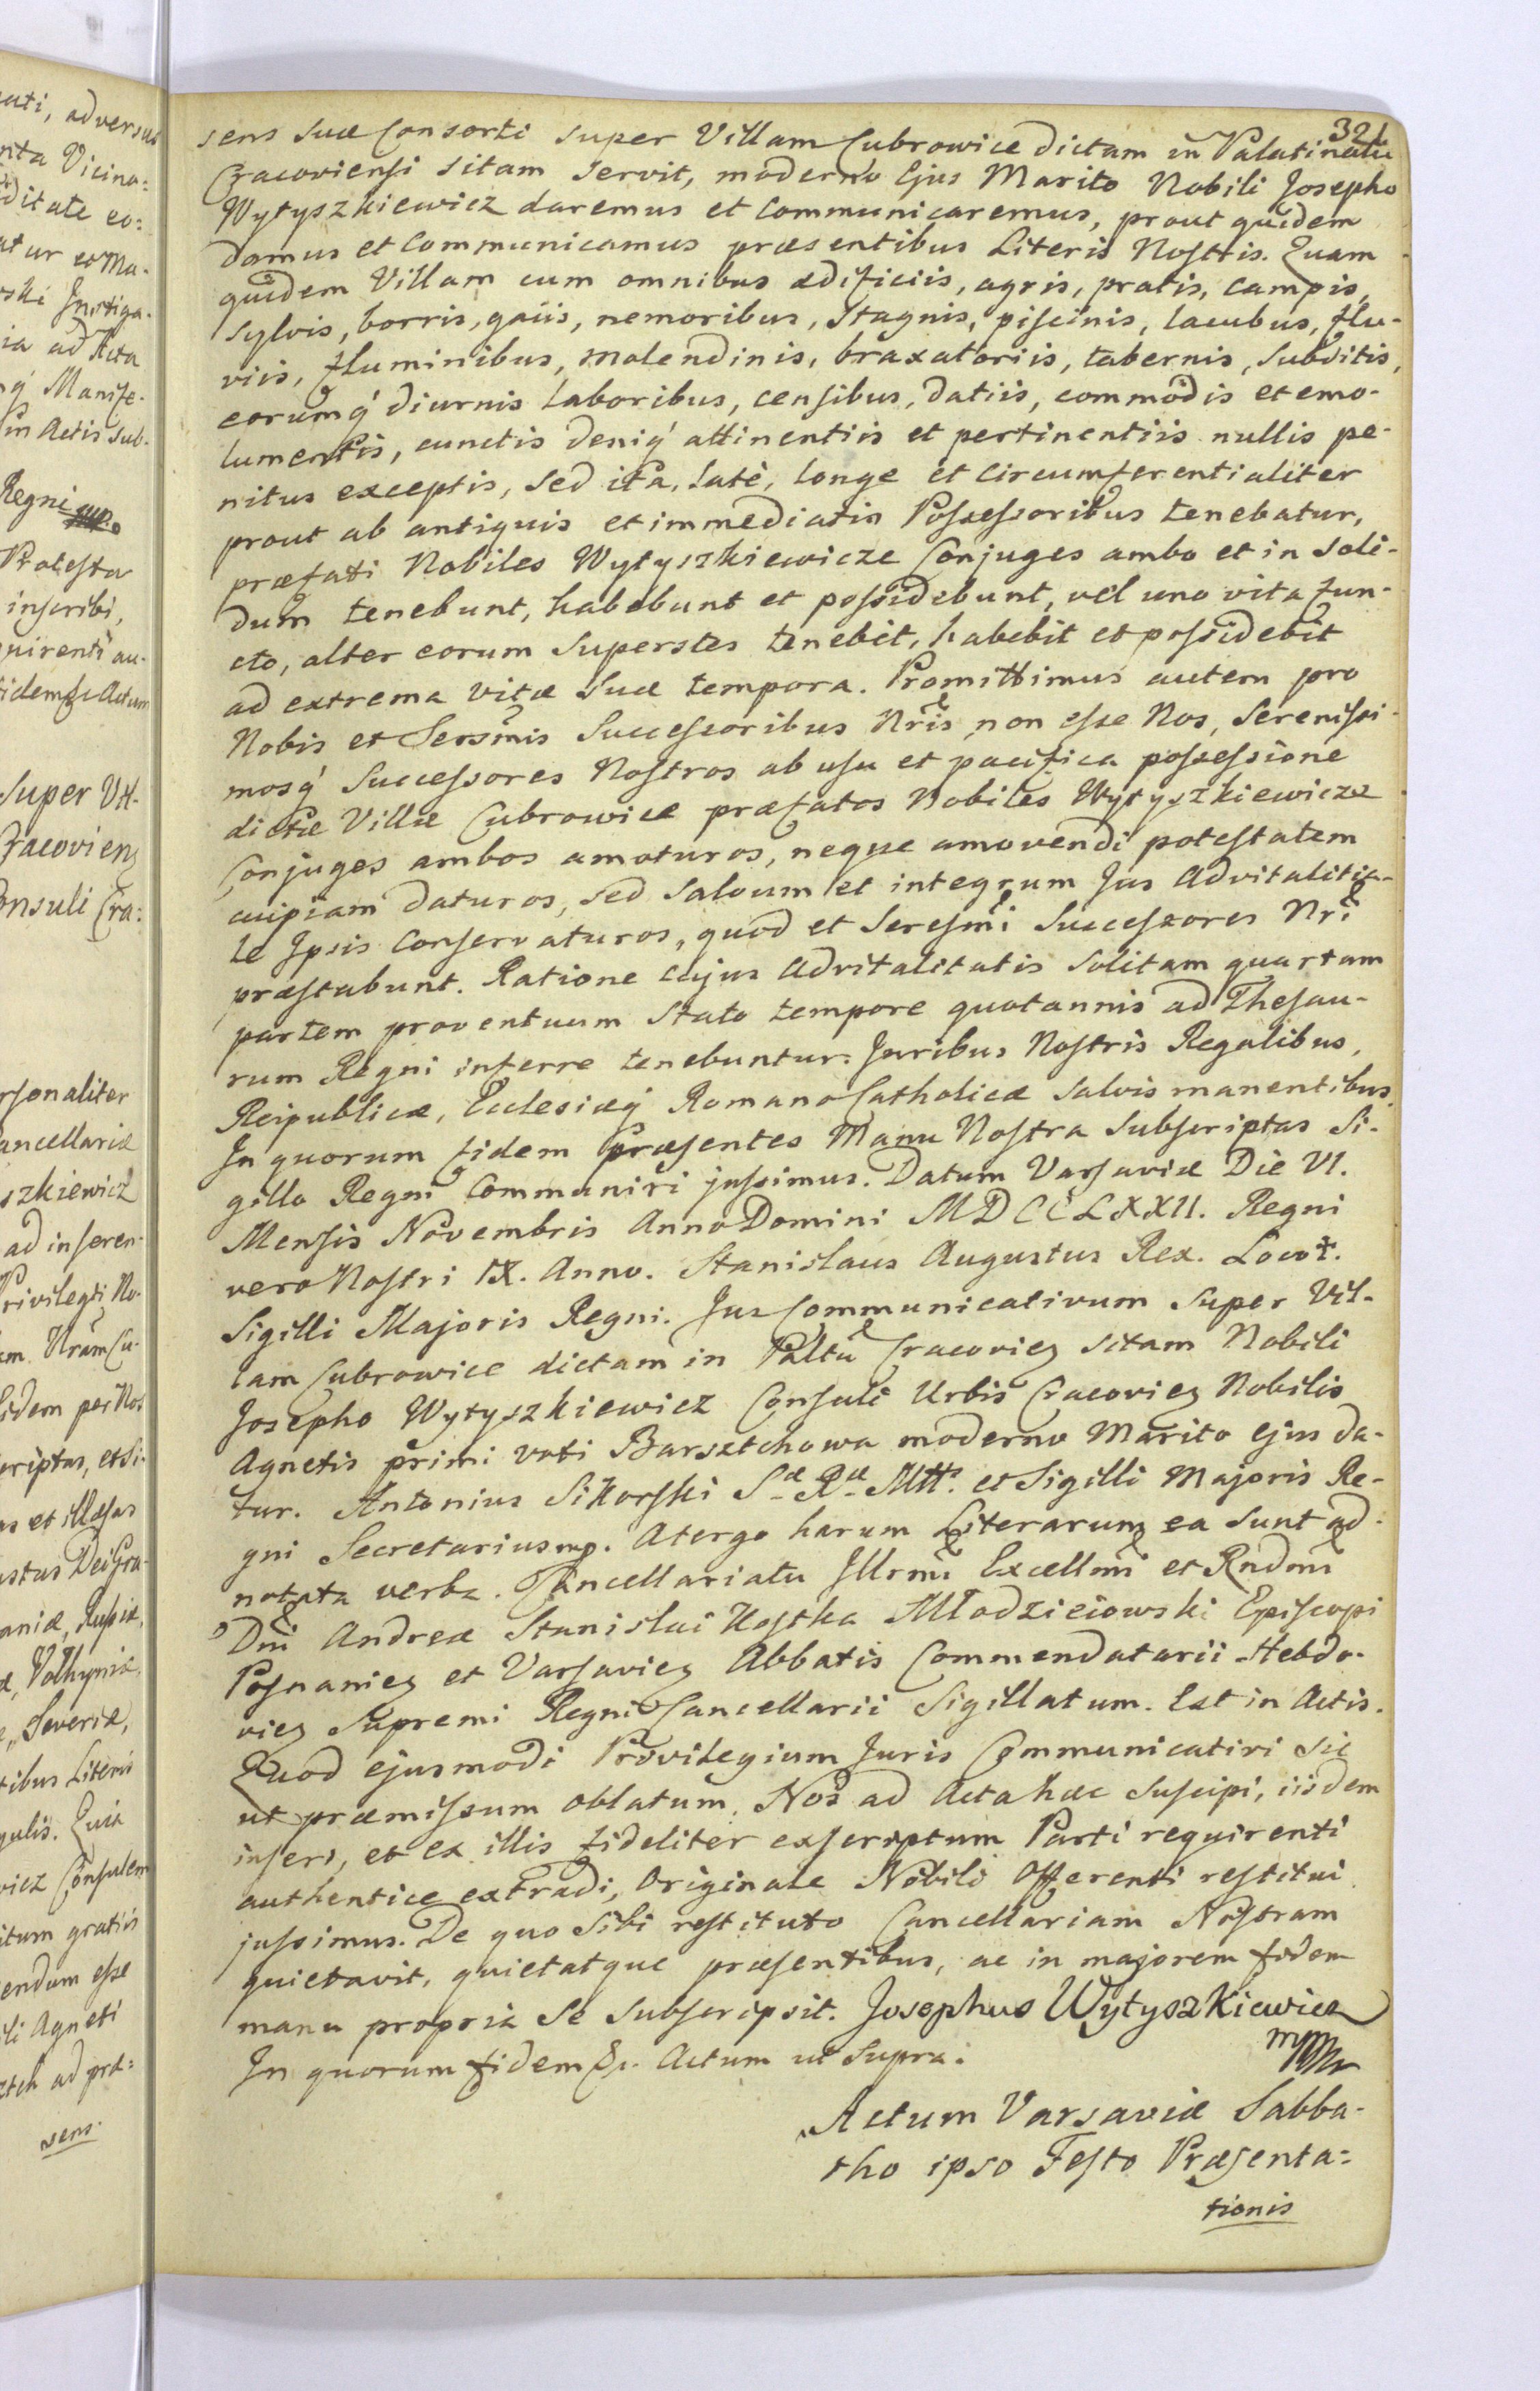 321
sens suæ Consorti super Villam Cubrowice dictam in Palatinatu
Cracoviensi sitam servit, moderno Ejus Marito Nobili Josepho
Wytyszkiewicz daremus et communicaremus, prout quidem
damus et communicamus præsentibus Literis Nostris. Quam
quidem Villam cum omnibus ædificiis, agris, pratis, campis,
sylvis, borris, gaiis, nemoribus, stagnis, piscinis, lacubus, flu-
viis, fluminibus, molendinis, braxatoriis, tabernis, subditis,
eorumq' diurnis laboribus, censibus, datiis, commodis et emo-
lumentis, cunctis deniq' attinentiis et pertinentiis nullis pe-
nitus exceptis, sed ita, latè, longe et circumferentialiter
prout ab antiquis et immediatis Possessoribus tenebatur,
præfati Nobiles Wytyszkiewicze Conjuges ambo et in soli-
dum tenebunt, habebunt et possidebunt, vel uno vita fun-
cto, alter eorum superstes tenebit, habebit et possidebit
ad extrema vitæ suæ tempora. Promittimus autem pro
Nobis et Sersmis Successoribus Nris non esse Nos, Serenissi-
mosq' Successores Nostros ab usu et pacifica possessione
dictæ Villæ Cubrowice præfatos Nobiles Wytyszkiewicze
Conjuges ambos amoturos, neque amovendi potestatem
cuipiam daturos, sed salvum et integrum Jus Advitalitia-
le Ipsis conservaturos, quod et Seresmi Successores Nri
præstabunt. Ratione cujus Advitalitatis solitam quartam
partem proventuum stato tempore quotannis ad Thesau-
rum Regni inferre tenebuntur. Juribus Nostris Regalibus,
Reipublicæ, Ecclesiæq' Romano Catholicæ salvis manentibus.
In quorum fidem præsentes Manu Nostra subscriptas Si-
gillo Regni communiri jussimus. Datum Varsaviæ Die VI.
Mensis Novembris Anno Domini MDCCLXXII. Regni
vero Nostri IX. Anno. Stanislaus Augustus Rex. Locus.
Sigilli Majoris Regni. Jus Communicativum super Vil-
lam Cubrowice dictam in Paltu Cracovien sitam Nobili
Josepho Wytyszkiewicz Consuli Urbis Cracovien Nobilis
Agnetis primi voti Barsztchowa moderno Marito Ejus da-
tur. Antonius Sikorski S. R. Mtt. et Sigilli Majoris Re-
gni Secretarius mp. Atergo harum Literarum ea sunt ad-
notata verba. Cancellariatu Illrmi Excellmi et Rndmi
Dni Andreæ Stanislai Kostka Młodzieiowski Episcopi
Posnanien et Varsavien Abbatis Commendatarii Hebdo-
vien Supremi Regni Cancellarii Sigillatum. Est in Actis.
Quod ejusmodi Privilegium Juris Communicativi sic
ut præmissum oblatum, Nos ad Acta hæc suscipi, iisdem
inseri, et ex illis fideliter exscriptum Parti requirenti
authentice extradi, Originale Nobili Offerenti restitui
jussimus. De quo sibi restituto Cancellariam Nostram
quietavit, quietatque præsentibus, ac in majorem fidem
manu propria se subscripsit. Josephus Wytyszkiewicz
In quorum fidem &c. Actum ut supra.
Actum Varsaviæ Sabba-
tho ipso Festo Præsenta-
tionis